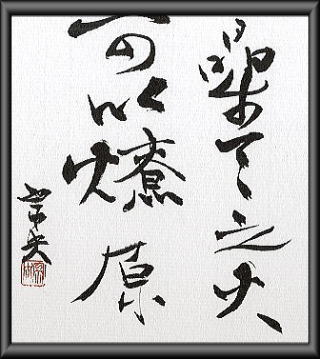 星々之火
可以燎原